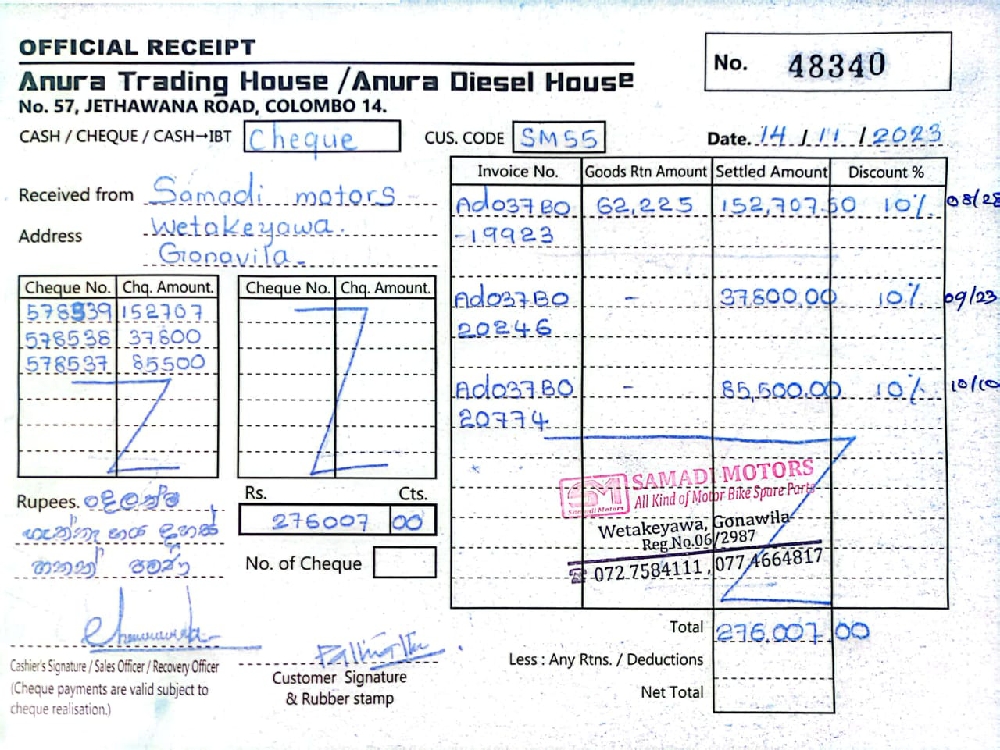 OFFICIAL RECEIPT
Anura Trading House /Anura Diesel House
No. 57, JETHAWANA ROAD, COLOMBO 14.
No. 48340
CASH / CHEQUE / CASH→IBT Cheque
CUS. CODE SM55
Date. 14 / 11 / 2023
Received from Samadi motors
Address Wetakeyawa.
Gonavila.
Cheque No. Chq. Amount.
578539 152707
578538 37800
578537 85500
Cheque No. Chq. Amount.
Invoice No. Goods Rtn Amount Settled Amount Discount %
Ad037B0 62,225 152,707.50 10% 08/28
-19923
Ad037B0 - 37,800.00 10% 09/23
20246
Ad037B0 - 85,500.00 10% 10/10
20774
SM
Samadi Motors
SAMADI MOTORS
All Kind of Motor Bike Spare Parts
Wetakeyawa, Gonawila
Reg.No.06/2987
☎ 072 7584111 , 077 4664817
Rupees. දෙලක්ෂ
හැත්තෑ හය දහස්
හතක් පමණි
Rs. Cts.
276007 00
No. of Cheque
Total 276,007.00
Less : Any Rtns. / Deductions
Net Total
Cashier's Signature / Sales Officer / Recovery Officer
(Cheque payments are valid subject to
cheque realisation.)
Customer Signature
& Rubber stamp